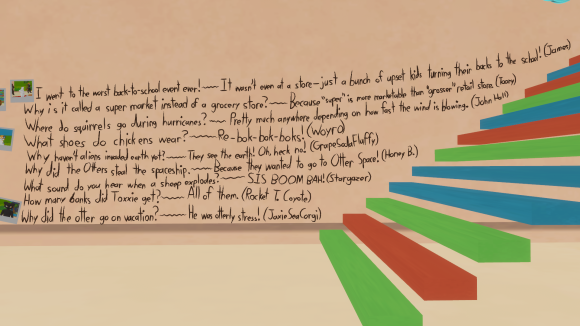 I went to the worst back-to-school event ever!~~~ It wasn't even at a store—just a bunch of upset kids turning their backs to the school! (James)
Why is it called a super market instead of a grocery store?~~~ Because "super" is more marketable than "grosser" retail store. (Toony)
Where do squirrels go during hurricanes?~~~ Pretty much anywhere depending on how fast the wind is blowing. (John Hall)
What shoes do chickens wear?~~~ Re-bok-bok-boks! (Woyro)
Why haven't aliens invaded earth yet?~~~ They see the earth! Oh, heck no! (GrapeSodaFluffy)
Why did the Otters steal the spaceship.~~~ Because they wanted to go to Otter Space! (Honey B.)
What sound do you hear when a sheep explodes?~~~ SIS BOOM BAH! (Stargazer)
How many banks did Toxxie get?~~~ All of them. (Rocket T. Coyote)
Why did the otter go on vacation?~~~ He was otterly stress! (JaxieSeaCorgi)